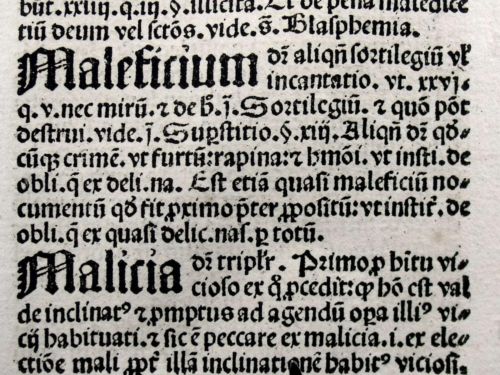 būt.xxiiij.q.iij.§.illicita. Et de pena maledicē
tiū deum vel sctōs. vide.s̄. Blasphemia.
Maleficium dr̄ aliqn̄ sortilegiū vl̵
incantatio. vt.xxvj.
q.v.nec mirū. ⁊ de h̄.j̄. Sortilegiū. ⁊ quō pōt
destrui.vide.j̄. Suꝑstitio.§.xiij. Aliqn̄ dr̄ qd̵
cūqꝫ crimē. vt furtū:rapina:⁊ hmōi. vt insti.de
obli.q̄ ex deli.na. Est etiā quasi maleficiū no-
cumentū qd̵ fit ꝓximo p̄ter ꝓpositū: vt instit̄.de
obli.q̄ ex quasi delic.nas.ꝑ totū.
Malicia dr̄ tripl̵r. Primo ꝓ hītu vi-
cioso ex q̊ ꝓcedit: qꝫ hō est val̵
de inclinatꝰ ⁊ ꝓmptus ad agendū oꝑa illiꝰ vi-
cij habituati. ⁊ sic ē peccare ex malicia.i.ex ele-
ctiōe mali ꝓpt̄ illā inclinationē habitꝰ viciosi.